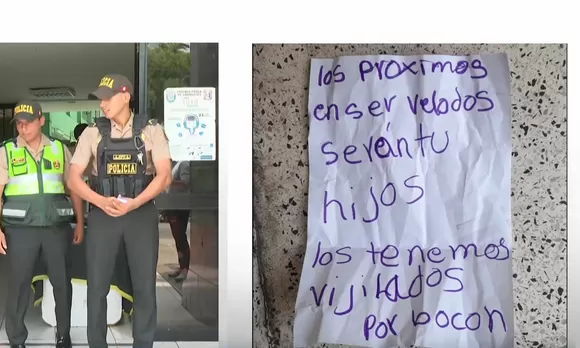 POLICIA
POLICIA
POLICIA
los proximos
en ser velados
serán tu
hijos
los tenemos
vijilados
por bocon